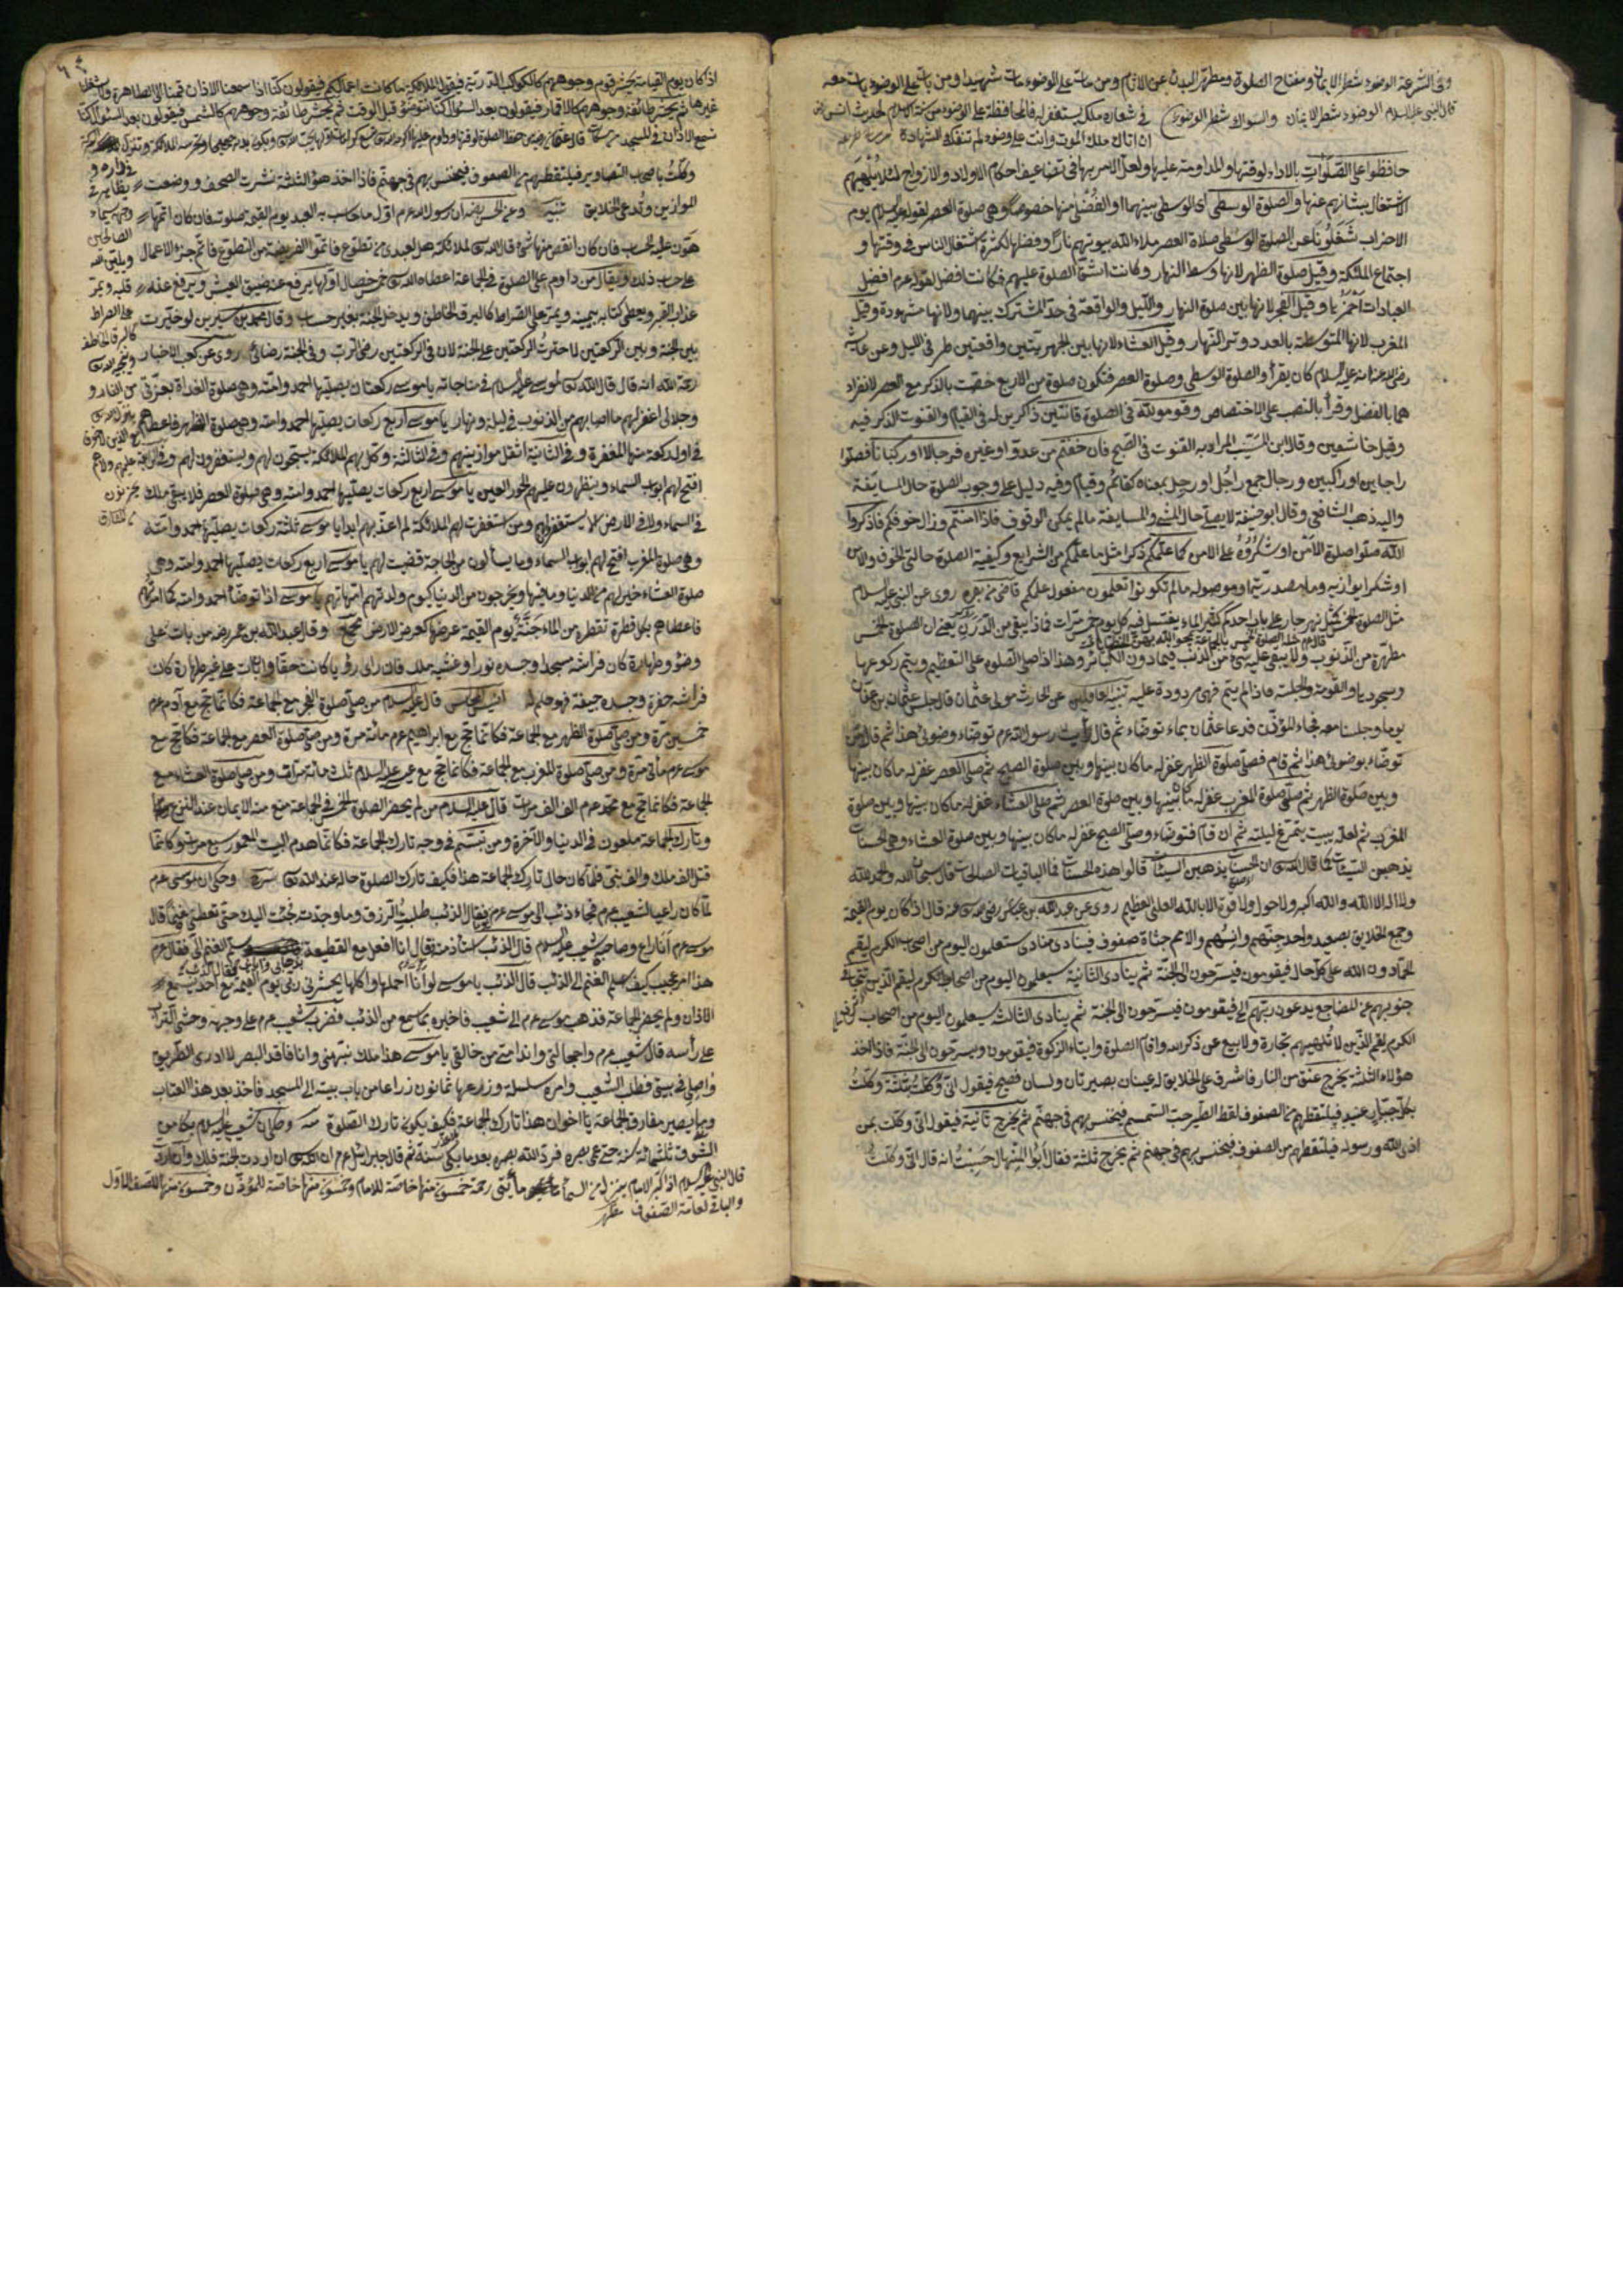 وفى الشرعة الوضوء شطر الايمان ومفتاح الصلوة ومطهر البدن عن الاثام ومن مات على الوضوء مات شهيدا ومن بات على الوضوء بات معه
قال النبى عليه السلام الوضوء شطر الايمان والسواك شطر الوضوء فى شعاره ملك يستغفر له فالمحافظة على الوضوء سنة الاسلام لحديث انس
ان اتاك ملك الموت وانت على وضوء لم تفتك الشهادة
حافظوا على الصلوات بالاداء لوقتها والمداومة عليها ولعل الامر بها فى تضاعيف احكام الاولاد والازواج لئلا يلهيهم
الاشتغال بشانهم عنها والصلوة الوسطى اى الوسطى بينهما او الفضلى منها خصوصا وهى صلوة العصر لقوله عليه السلام يوم
الاحزاب شغلونا عن الصلوة الوسطى صلاة العصر ملاء الله بيوتهم نارا وفضلها لكثرة اشتغال الناس فى وقتها و
اجتماع الملئكة وقيل صلوة الظهر لانها وسط النهار وكانت اشق الصلوة عليهم فكانت افضل لقوله عرم افضل
العبادات احمزها وقيل الفجر لانها بين صلوة النهار والليل والواقعة فى حد المشترك بينهما ولانها مشهودة وقيل
المغرب لانها المتوسطة بالعدد ووتر النهار وقيل العشاء لانها بين الجهريتين واقعتين طرفى الليل وعن عايشة
رضى الله عنها انه عليه السلام كان يقرأ والصلوة الوسطى وصلوة العصر فتكون صلوة من الاربع خصت بالذكر مع العصر لانفراد
هما بالفضل وقرأ بالنصب على الاختصاص وقوموا لله فى الصلوة قانتين ذاكرين له فى القيام والقنوت الذكر فيه
وقيل خاشعين وقال ابن المسيب المراد به القنوت فى الصبح فان خفتم من عدو او غيره فرجالا او ركبانا فصلوا
راجلين او راكبين ورجال جمع راجل او رجل بمعناه كقائم وقيام وفيه دليل على وجوب الصلوة حال المسايفة
واليه ذهب الشافعى وقال ابو حنيفة لا يصلى حال المشى والمسايفة مالم يمكن الوقوف فاذا امنتم وزال خوفكم فاذكروا
الله صلوا صلوة الامن او شكروه على الامن كما علمكم ذكرا مثل ما علمكم من الشرايع وكيفية الصلوة حالتى الخوف والامن
او شكرا يوازيه وما مصدرية او موصوله مالم تكونوا تعلمون مفعول علمكم قاضى روى عن النبى عليه السلام
مثل الصلوة الخمس كمثل نهر جار على باب احدكم كثير الماء يغتسل فيه كل يوم خمس مرات فماذا يبقى من الدرن يعنى ان الصلوة الخمس
مطهرة من الذنوب ولا يبقى عليه شئ من الذنب فيما دون الكبائر وهذا اذا صلى الصلوة على التعظيم ويتم ركوعها
وسجودها والقومة والجلسة فاذا لم يتم فهى مردودة عليه تنبيه الغافلين عن الحارث مولى عثمان قال جلس عثمان بن عفان
يوما وجلسنا معه فجاء المؤذن فدعا عثمان بماء توضاء ثم قال رأيت رسول الله عرم توضاء وضوئى هذا ثم قال من
توضاء بوضوئى هذا ثم قام فصلى صلوة الظهر غفر له ما كان بينها وبين صلوة الصبح ثم صلى العصر غفر له ما كان بينها
وبين صلوة الظهر ثم صلى صلوة المغرب غفر له ما بينها وبين صلوة العصر ثم صلى العشاء غفر له ما كان بينها وبين صلوة
المغرب ثم لعله يبيت يتمرغ ليلته ثم ان قام فتوضاء وصلى الصبح غفر له ما كان بينها وبين صلوة العشاء وهى الحسنات
يذهبن السيئات كما قال الله تعالى ان الحسنات يذهبن السيئات قالوا هذه الحسنات فما الباقيات الصالحات قال سبحان الله والحمد لله
ولا اله الا الله والله اكبر ولا حول ولا قوة الا بالله العلى العظيم روى عن عبد الله بن عباس رضى الله عنه قال اذا كان يوم القيمة
وجمع الخلايق بصعيد واحد جنهم وانسهم والامم جثاة صفوف فينادى منادى ستعلمون اليوم من اصحاب الكرم ليقم
الحمادون الله على كل حال فيقومون فيسرحون الى الجنة ثم ينادى الثانية سيعلمون اليوم من اصحاب الكرم ليقم الذين تتجافى
جنوبهم عن المضاجع يدعون ربهم الى فيقومون فيسرحون الى الجنة ثم ينادى الثالث سيعلمون اليوم من اصحاب
الكرم ليقم الذين لا تلهيهم تجارة ولا بيع عن ذكر الله واقام الصلوة وايتاء الزكوة فيقومون ويسرحون الى الجنة فاذا اخذ
هؤلاء الثلثة يخرج عنق من النار فاشرف على الخلايق له عينان بصيرتان ولسان فصيح فيقول انى وكلت بثلثة وكلت
بكل جبار عنيد فيلتقطهم من الصفوف لقط الطير حب السمسم فيخنس بهم فى جهنم ثم يخرج ثانية فيقول انى وكلت بمن
اذى الله ورسوله فيلتقطهم من الصفوف فيخنس بهم فى جهنم ثم يخرج ثلثة فقال ابو المنهال حسبت انه قال انى وكلت
اذا كان يوم القيامة يحشر قوم وجوههم كالكوكب الدرية فيقول الملائكة ما كانت اعمالكم فيقولون كنا اذا سمعنا الاذان قمنا الى الطهارة
غيرها ثم يحشر طائفة وجوههم كالاقمار فيقولون بعد السؤال كنا نتوضؤ قبل الوقت ثم يحشر طائفة وجوههم كالشمس فيقولون بعد السؤال كنا
نسمع الاذان فى المسجد
وكلت باصحاب التصاوير فيلتقطهم من الصفوف فيخنس بهم فى جهنم فاذا اخذ هؤلاء الثلثة نشرت الصحف ووضعت
الموازين وتدعى الخلايق تنبيه وعن الحسن ان رسول الله عرم اول ما يحاسب به العبد يوم القيمة صلوته فان كان اتمها
هون عليه الحساب فان كان انقص منها شئ قال الله تعالى لملائكته هل لعبدى من تطوع فاتموا الفريضة من التطوع
على حساب ذلك ويقال من داوم على الصلوة فى الجماعة اعطاه الله تعالى خمس خصال اولها يرفع عنه ضيق العيش ويرفع عنه
عذاب القبر ويعطى كتابه بيمينه ويمر على الصراط كالبرق الخاطف ويدخل الجنة بغير حساب وقال محمد بن سيرين لو خيرت
بين الجنة وبين الركعتين لاخترت الركعتين على الجنة لان فى الركعتين رضى الرب وفى الجنة رضائى روى عن كعب الاخبار
رحمة الله انه قال قال الله تعالى لموسى عليه السلام فى مناجاته يا موسى ركعتان يصليها احمد وامته وهى صلوة الغداة
وجلالى اغفر لهم ما اصابهم من الذنوب فى ليله ونهار يا موسى اربع ركعات يصليها احمد وامته وهى صلوة الظهر فاعطاهم
فى اول ركعة منها المغفرة وفى الثانية اثقل موازينهم وفى الثالثة وكل بهم الملائكة يسبحون لهم ويستغفرون لهم وفى الرابعة
افتح لهم ابواب السماء وينظرون عليهم الحور العين يا موسى اربع ركعات يصليها احمد وامته وهى صلوة العصر فلا يبقى ملك
فى السماء ولا فى الارض الا يستغفر لهم ومن استغفرت لهم الملائكة لم اعذبهم ابدا يا موسى ثلثة ركعات يصليها احمد وامته
وهى صلوة المغرب افتح لهم ابواب السماء وما يسألون من الحاجة قضيت لهم يا موسى اربع ركعات يصليها احمد وامته وهى
صلوة العشاء خير لهم من الدنيا وما فيها ويخرجون من الدنيا كيوم ولدتهم امهاتهم يا موسى اذا توضأ احمد وامته كما امرتهم
فاعطاهم بكل قطرة تقطر من الماء جنة يوم القيمة عرضها كعرض الارض وقال عبد الله بن عمر رضه من بات على
وضؤ وطهارة كان فراشه مسجدا وجسده نورا وغشيه ملك فان راى رؤيا كانت حقا وان بات على غير طهارة كان
فراشه حفرة وجسده جيفة فهو حلم له انيس المجالس قال عليه السلام من صلى صلوة الفجر مع الجماعة فكانما حج مع آدم عرم
خمسين مرة ومن صلى صلوة الظهر مع الجماعة فكانما حج مع ابراهيم عرم مائة مرة ومن صلى صلوة العصر مع الجماعة فكانما حج مع
موسى عرم مأتى مرة ومن صلى صلوة المغرب مع الجماعة فكانما حج مع عيسى عليه السلام ثلث مائة مرات ومن صلى صلوة العشاء مع
الجماعة فكانما حج مع محمد عرم الف الف مرات قال عليه السلام من لم يحضر الصلوة الخمس فى الجماعة منع منه الايمان عند النزع
وتارك الجماعة ملعون فى الدنيا والآخرة ومن تبسم فى وجه تارك الجماعة فكانما هدم البيت المعمور سبع مرات وكانما
قتل الف ملك والف نبى فلما كان حال تارك الجماعة هذا فكيف تارك الصلوة حاله عند الله تعالى وحكى ان موسى عرم
لما كان راعيا لشعيب عرم فجاء ذئب الى موسى عرم فقال الذئب طلبت الرزق وما وجدته جئت اليك حتى تعطى غنما قال
موسى عرم انا راع وصاحبى شعيب عليه السلام قال الذئب استاذن منه فقال انا افعل مع القطيعة
هذا امر عجيب كيف اسلم الغنم الى الذئب قال الذئب يا موسى لو انا احملها واكلها يحشرنى ربى يوم القيمة مع احد يسمع
الاذان ولم يحضر الجماعة فذهب موسى عرم الى شعيب فاخبره بما سمع من الذئب فضرب شعيب عرم على وجهه وحشى التراب
على رأسه قال شعيب عرم واخجالتى واندامتى من خالقى يا موسى هذا ملك نبهنى وانا فاقد البصر لا ادرى الطريق
واصلى فى بيتى فطلب الشعيب وامره سلسلة وزرعها ثمانون زراعا من باب بيته الى المسجد فاخذ بعد هذا العتاب
وبها يصير مفارق الجماعة يا اخوان هذا تارك الجماعة فكيف يكون تارك الصلوة وحكى ان شعيب عليه السلام بكا من
الشوق ثلثمائة سنة حتى عمى بصره فرد الله بصره بعد ما بكى سنة ثم قال جبرائيل عرم ان الله تعالى ان اردت الجنة فلك وان اردت
قال النبى عليه السلام اذا كبر الامام ينزل من السماء مأتى رحمة خمسون منها خاصة للامام وخمسون منها خاصة للمؤذن وخمسون منها للصف الاول
والباقى لعامة الصفوف مظهر